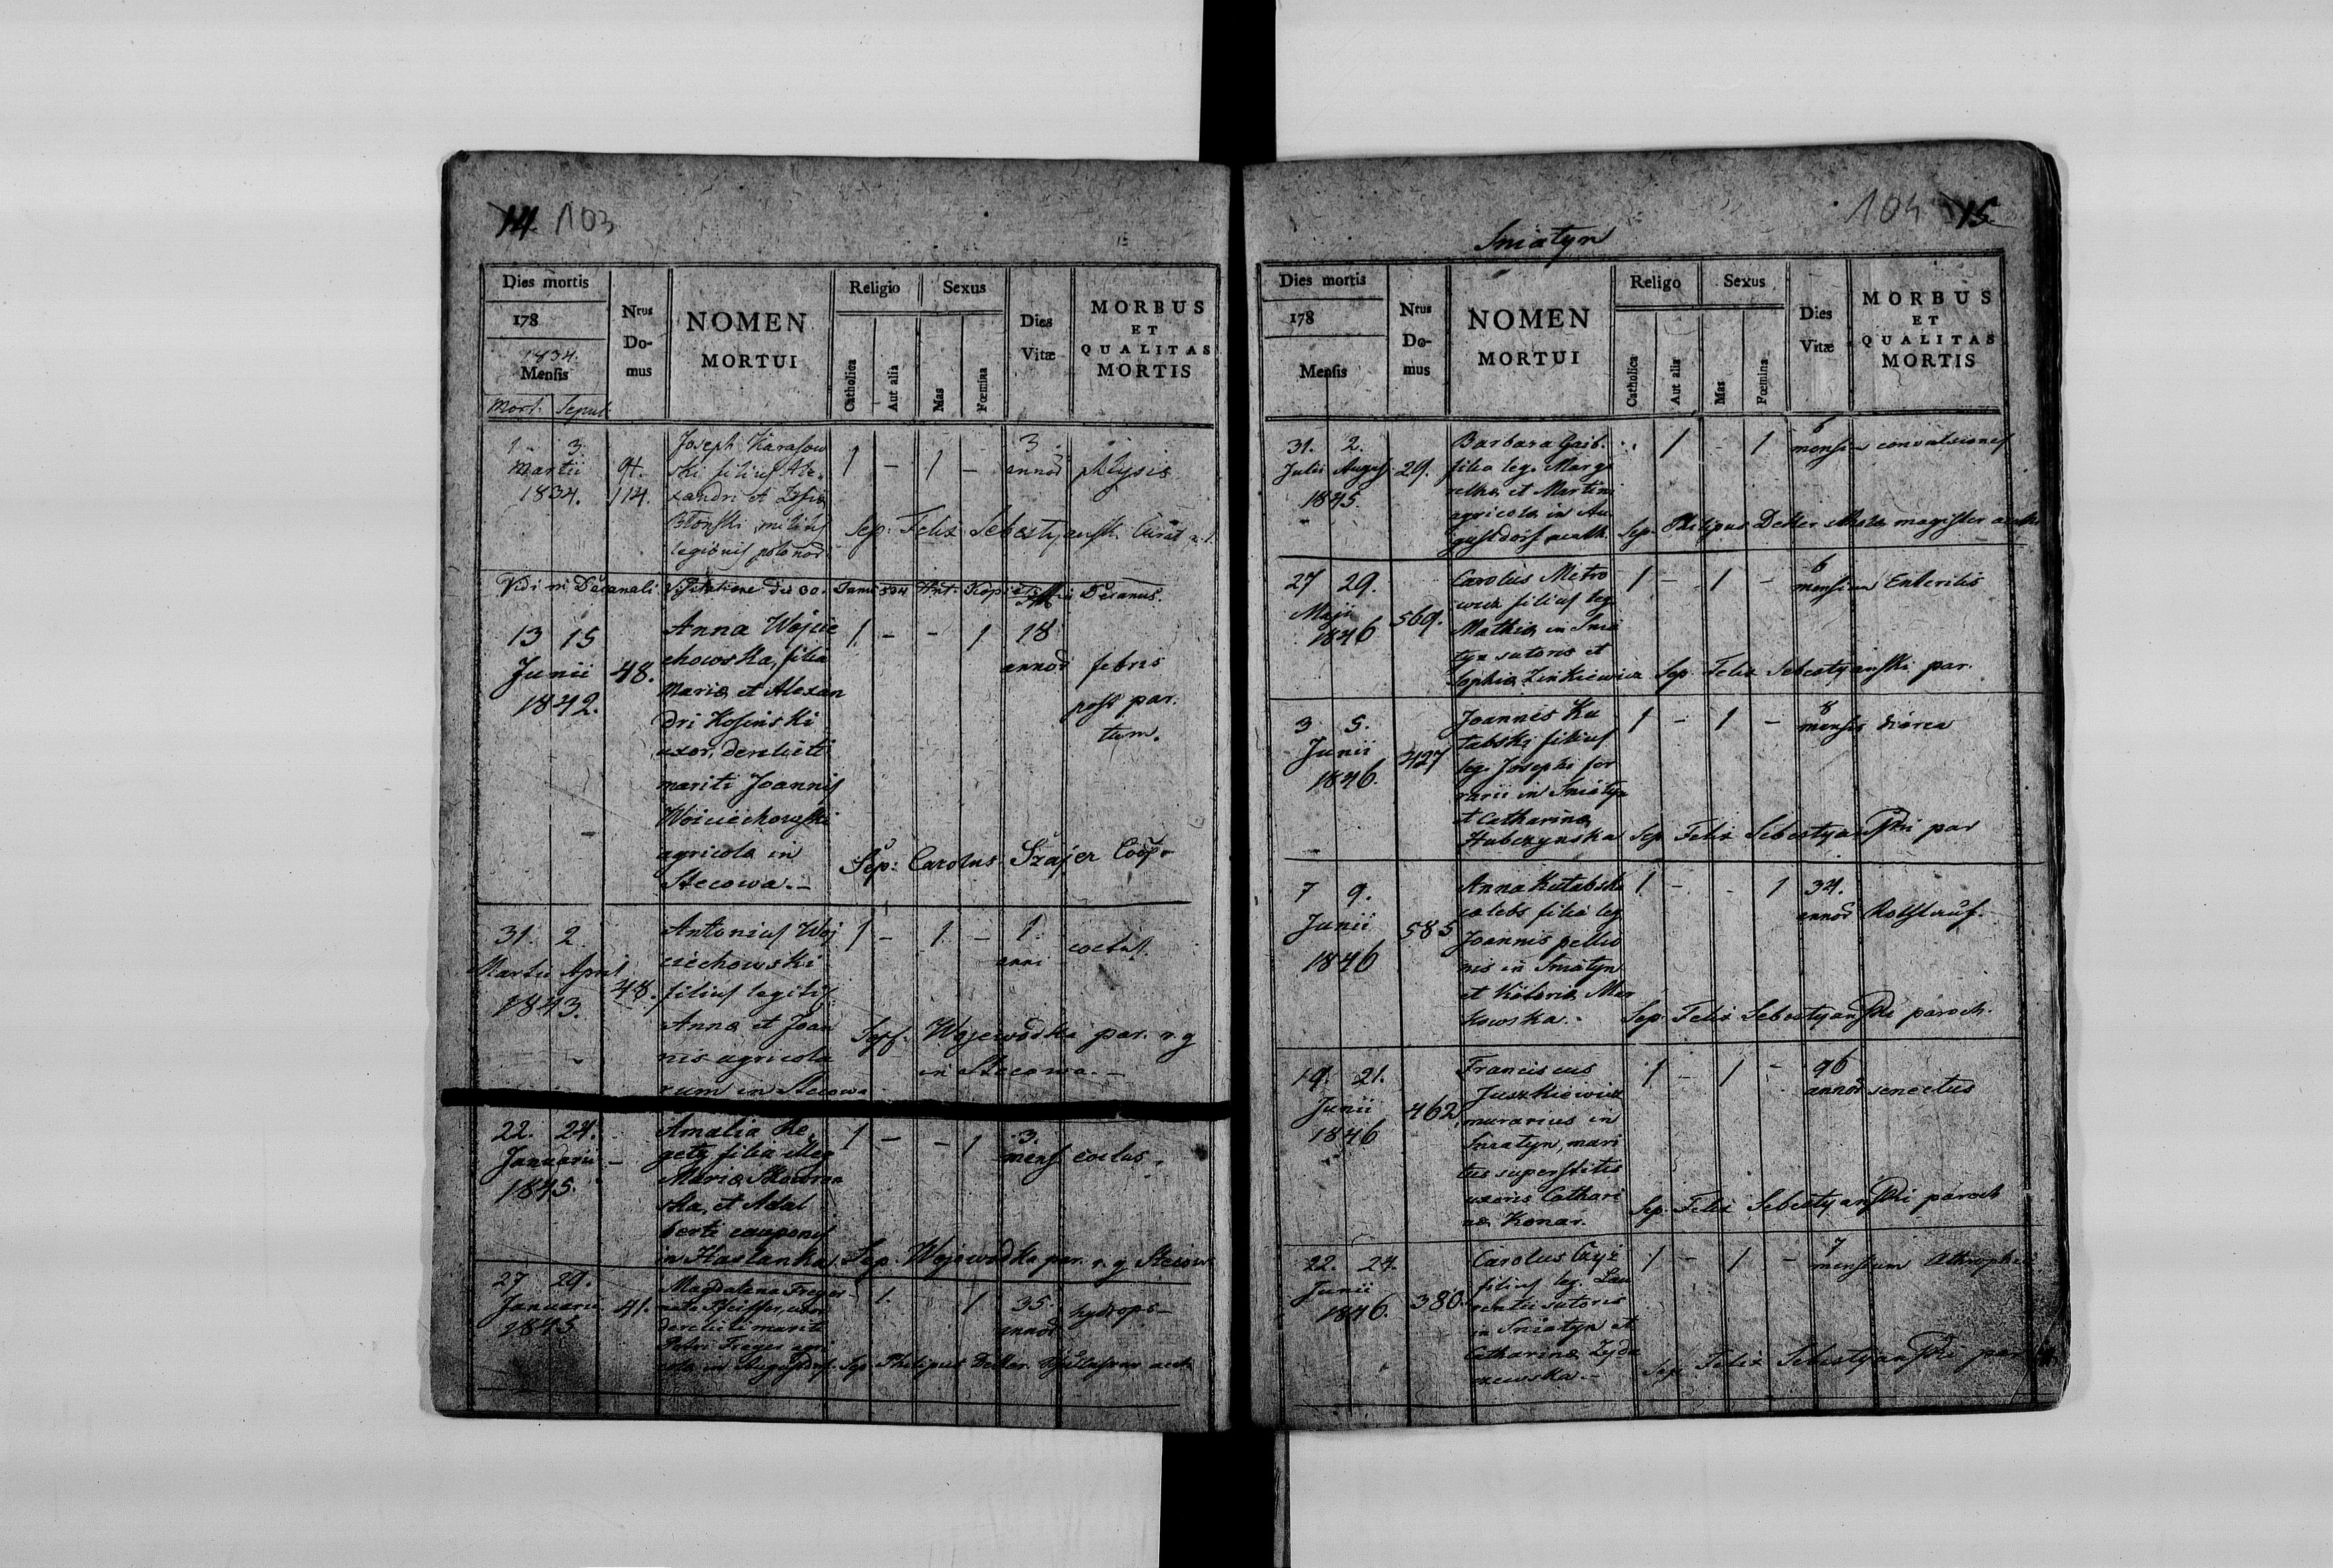 14. 103
Dies mortis
178
1834.
Mensis
Mort. Sepul.
Nrus Do-mus
NOMEN
MORTUI
Religio
Catholica
Aut alia
Sexus
Mas
Fœmina
Dies
Vitæ
MORBUS
ET
QUALITAS
MORTIS
1 3.
Martii
1834.
94.
114.
Joseph Karasow
ski filius Ale-
xandri et Zofia
Błonski militis
legionis polonor
1 - 1 -
3
annor phtysis
Sep: Felix Sebestyanski Curat.
Vidi in Decanali Visitatione die 30. Junii 834 Ant: Decanus.
13 15
Junii
1842.
48.
Anna Wojcie
chowska, filia
Maria et Alexan
dri Kosinski
uxor, derelicti
mariti Joannis
Woiciechowski
agricola in
Stecowa.-
1 - - 1
18
annor
febris
post par.
tum.
Sep: Carolus Szajer Coop.
31. 2.
Martii April
1843.
48.
Antonius Woj
ciechowski
filius legitis
Anna et Joan
nis agricola
rum in Stecowa
1 - 1. - 1
anni
coctus.
Wojewodka par. r. g
in Stecowa.-
22. 24.
Januarii
1845.
-
Amalia Re
getz filia illeg
Maria
ska, et Adal
berti cauponis
in Hastanka.
1 - - 1
3.
mens. coctus.
Sep. Wojewodka par. r. g Stecow
27 29.
Januarii
1845
41.
Magdalena Freyer
nata Pfeiffer, uxor
derelicti mariti
Petri Freyer agri
cola in Augustdorf.
- 1. 1
35.
annor
hydrops-
Sep. Philipus Decker
Sniatyn
104 15.
Dies mortis
178
Mensis
Nrus Do-mus
NOMEN
MORTUI
Religo
Catholica
Aut alia
Sexus
Mas
Fœmina
Dies
Vitæ
MORBUS
ET
QUALITAS
MORTIS
31. 2.
Julii August
1845.
29.
Barbara Gaib.
filia leg. Marga
retha et Martini
agricola in Au
gustdorf
1 - 1
6
mensium convulsiones
Sep. Philipus Decker magister
27 29.
Maji
1846
569.
Carolus Metro
wicz filius leg.
Mathia in Snia
tyn sutoris et
Sophia Zinkiewicz
1 - 1 -
6
mensium Enteritis
Sep. Felix Sebestyanski par.
3 5.
Junii
1846.
427
Joannes Ku
tabski filius
leg. Josephi for
rarii in Sniatyn
et Catharina
Hubczynska
1 - 1 -
8
mensis diarea
Sep Felix Sebestyanski par
7 9.
Junii
1846
585
Anna Kutabska
cœlebs filia leg
Joannis pellio
nis in Sniatyn
et Victoria Mar
kowska.-
1 - - 1
34.
annor
Sep. Felix Sebestyanski paroch.
19. 21.
Junii
1846
462
Franciscus
Juszkiewicz
murarius in
Sniatyn, mari
tus superstitis
uxoris Cathari
na Konar.
1 - 1 -
96
annor senectus
Sep. Felix Sebestyanski paroch
22. 24.
Junii
1846.
380.
Carolus Czyz
filius leg. Lau
rentii sutoris
in Sniatyn et
Catharina Zyda
czewska.-
1 - 1 -
7
mensium
Sep. Felix Sebestyanski par